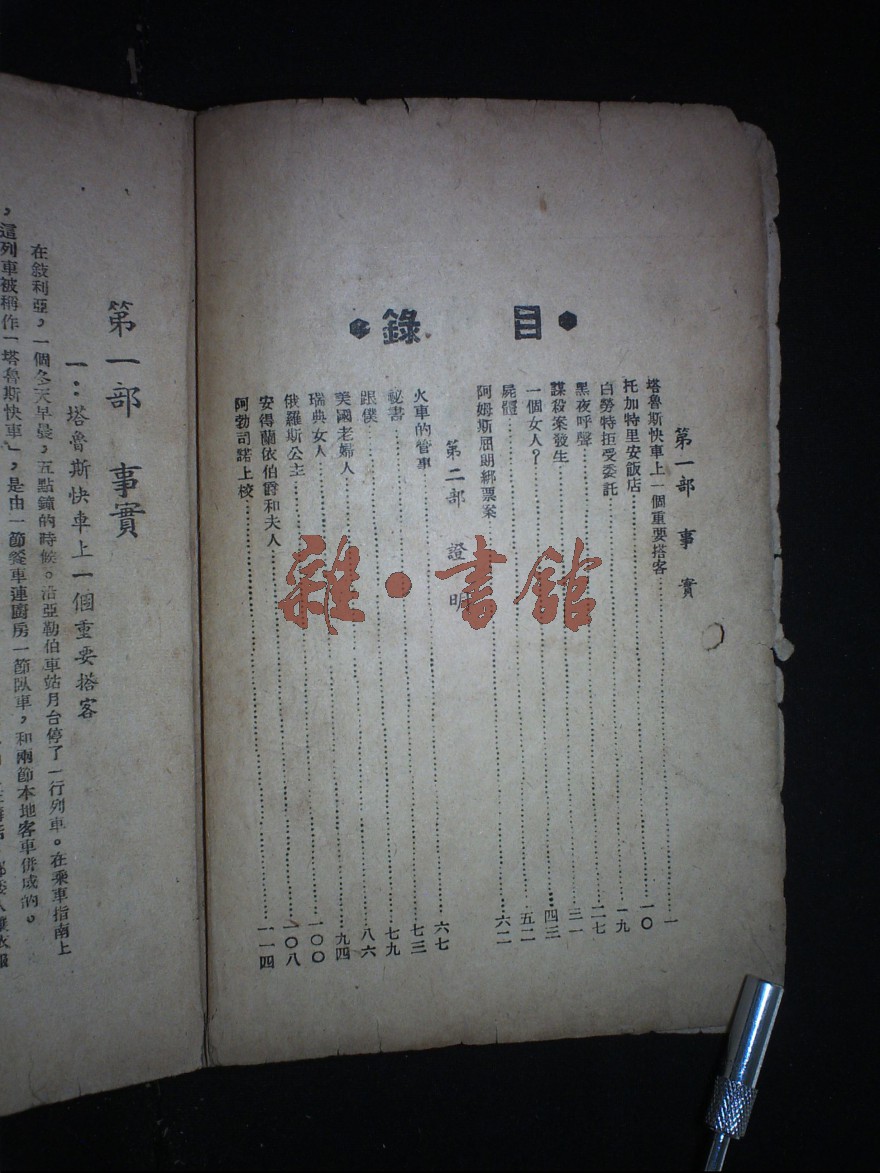 目錄
第一部 事實
塔魯斯快車上一個重要搭客……一
托加特里安飯店……一〇
白勞特拒受委託……一九
黑夜呼聲……二七
謀殺案發生……三一
一個女人？……四三
屍體……五二
阿姆斯屈朗綁票案……六二
第二部 證明
火車的管事……六七
秘書……七三
跟僕……七九
美國老婦人……八六
瑞典女人……九四
俄羅斯公主……一〇〇
安得蘭依伯爵和夫人……一〇八
阿勃司諾上校……一一四
雜·書館
第一部 事實
一：塔魯斯快車上一個重要搭客
在敍利亞，一個冬天早晨，五點鐘的時候。沿亞勒伯車站月台停了一行列車。在乘車指南上
，這列車被稱作「塔魯斯快車」，是由一節餐車連廚房一節臥車，和兩節本地客車併成的。